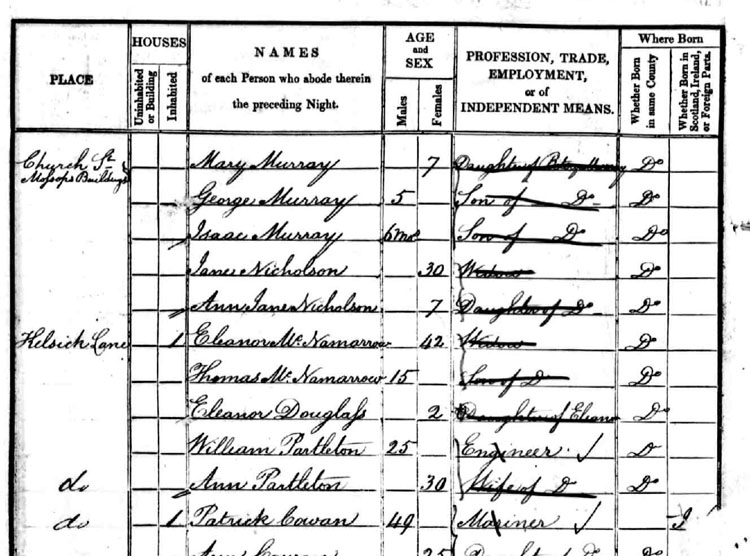 PLACE HOUSES NAMES of each Person who abode therein the preceding Night. AGE and SEX PROFESSION, TRADE, EMPLOYMENT, or of INDEPENDENT MEANS. Where Born
Uninhabited or Building Inhabited Males Females Whether Born in same County Whether Born in Scotland, Ireland, or Foreign Parts.
Church St. Mossops Buildings Mary Murray 7 Daughter of Do
George Murray 5 Son of Do Do
Isaac Murray 6 mos Son of Do Do
Jane Nicholson 30 Widow Do
Ann Jane Nicholson 7 Daughter of Do Do
Kelsick Lane 1 Eleanor Mc Namarrow 42 Widow Do
Thomas Mc Namarrow 15 Son of Do Do
Eleanor Douglass 2 Daughter of Eleanor Do
William Partleton 25 Engineer Do
do Ann Partleton 30 Wife of Do Do
do 1 Patrick Cowan 49 Mariner I
Ann 25 Daughter Do